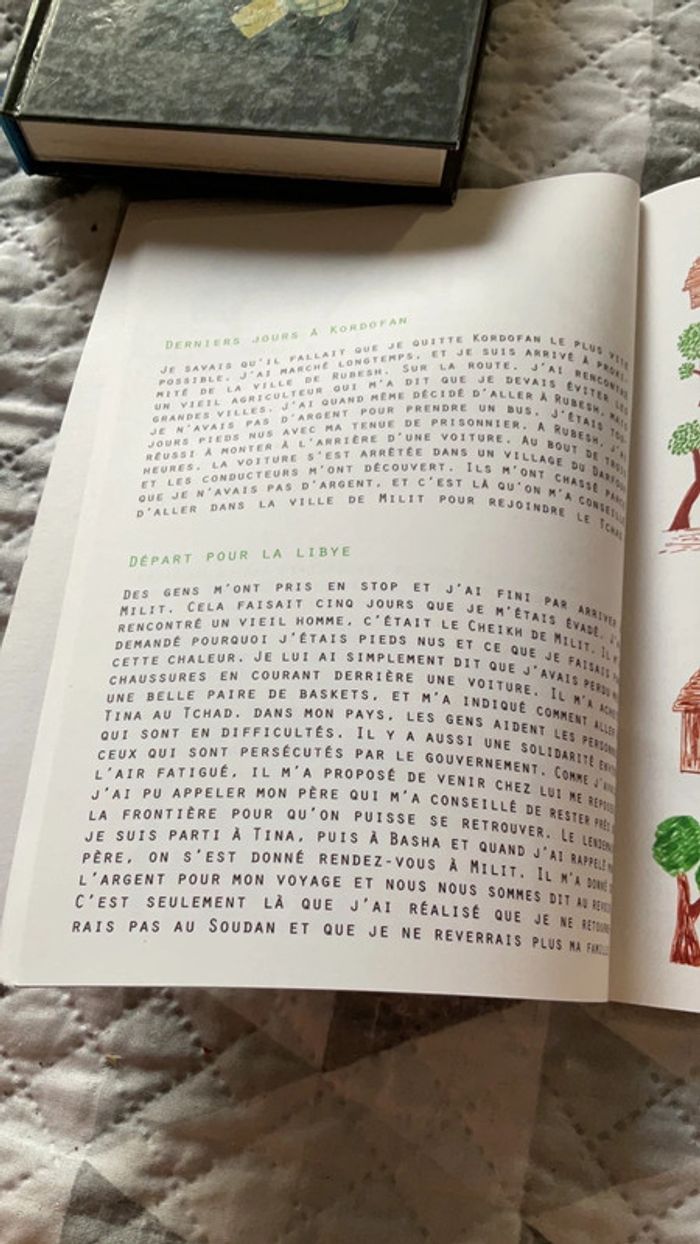 DERNIERS JOURS À KORDOFAN
JE SAVAIS QU'IL FALLAIT QUE JE QUITTE KORDOFAN LE PLUS VITE
POSSIBLE. J'AI MARCHÉ LONGTEMPS, ET JE SUIS ARRIVÉ À PROXI-
MITÉ DE LA VILLE DE RUBESH. SUR LA ROUTE, J'AI RENCONTRÉ
UN VIEIL AGRICULTEUR QUI M'A DIT QUE JE DEVAIS ÉVITER LES
GRANDES VILLES. J'AI QUAND MÊME DÉCIDÉ D'ALLER À RUBESH, MAIS
JE N'AVAIS PAS D'ARGENT POUR PRENDRE UN BUS. J'ÉTAIS TOU-
JOURS PIEDS NUS AVEC MA TENUE DE PRISONNIER. A RUBESH, J'AI
RÉUSSI À MONTER À L'ARRIÈRE D'UNE VOITURE. AU BOUT DE TROIS
HEURES, LA VOITURE S'EST ARRÊTÉE DANS UN VILLAGE DU DARFOUR
ET LES CONDUCTEURS M'ONT DÉCOUVERT. ILS M'ONT CHASSÉ PARCE
QUE JE N'AVAIS PAS D'ARGENT, ET C'EST LÀ QU'ON M'A CONSEILLÉ
D'ALLER DANS LA VILLE DE MILIT POUR REJOINDRE LE TCHAD
DÉPART POUR LA LIBYE
DES GENS M'ONT PRIS EN STOP ET J'AI FINI PAR ARRIVER
MILIT. CELA FAISAIT CINQ JOURS QUE JE M'ÉTAIS ÉVADÉ.
RENCONTRÉ UN VIEIL HOMME, C'ÉTAIT LE CHEIKH DE MILIT. IL
DEMANDÉ POURQUOI J'ÉTAIS PIEDS NUS ET CE QUE JE FAISAIS
CETTE CHALEUR. JE LUI AI SIMPLEMENT DIT QUE J'AVAIS PERDU
CHAUSSURES EN COURANT DERRIÈRE UNE VOITURE. IL M'A
UNE BELLE PAIRE DE BASKETS, ET M'A INDIQUÉ COMMENT ALLER
TINA AU TCHAD. DANS MON PAYS, LES GENS AIDENT LES
QUI SONT EN DIFFICULTÉS. IL Y A AUSSI UNE SOLIDARITÉ
CEUX QUI SONT PERSÉCUTÉS PAR LE GOUVERNEMENT. COMME
L'AIR FATIGUÉ, IL M'A PROPOSÉ DE VENIR CHEZ LUI ME
J'AI PU APPELER MON PÈRE QUI M'A CONSEILLÉ DE RESTER
LA FRONTIÈRE POUR QU'ON PUISSE SE RETROUVER. LE
JE SUIS PARTI À TINA, PUIS À BASHA ET QUAND J'AI RAPPELÉ
PÈRE, ON S'EST DONNÉ RENDEZ-VOUS À MILIT. IL M'A DONNÉ
L'ARGENT POUR MON VOYAGE ET NOUS NOUS SOMMES DIT AU
C'EST SEULEMENT LÀ QUE J'AI RÉALISÉ QUE JE NE
RAIS PAS AU SOUDAN ET QUE JE NE REVERRAIS PLUS MA